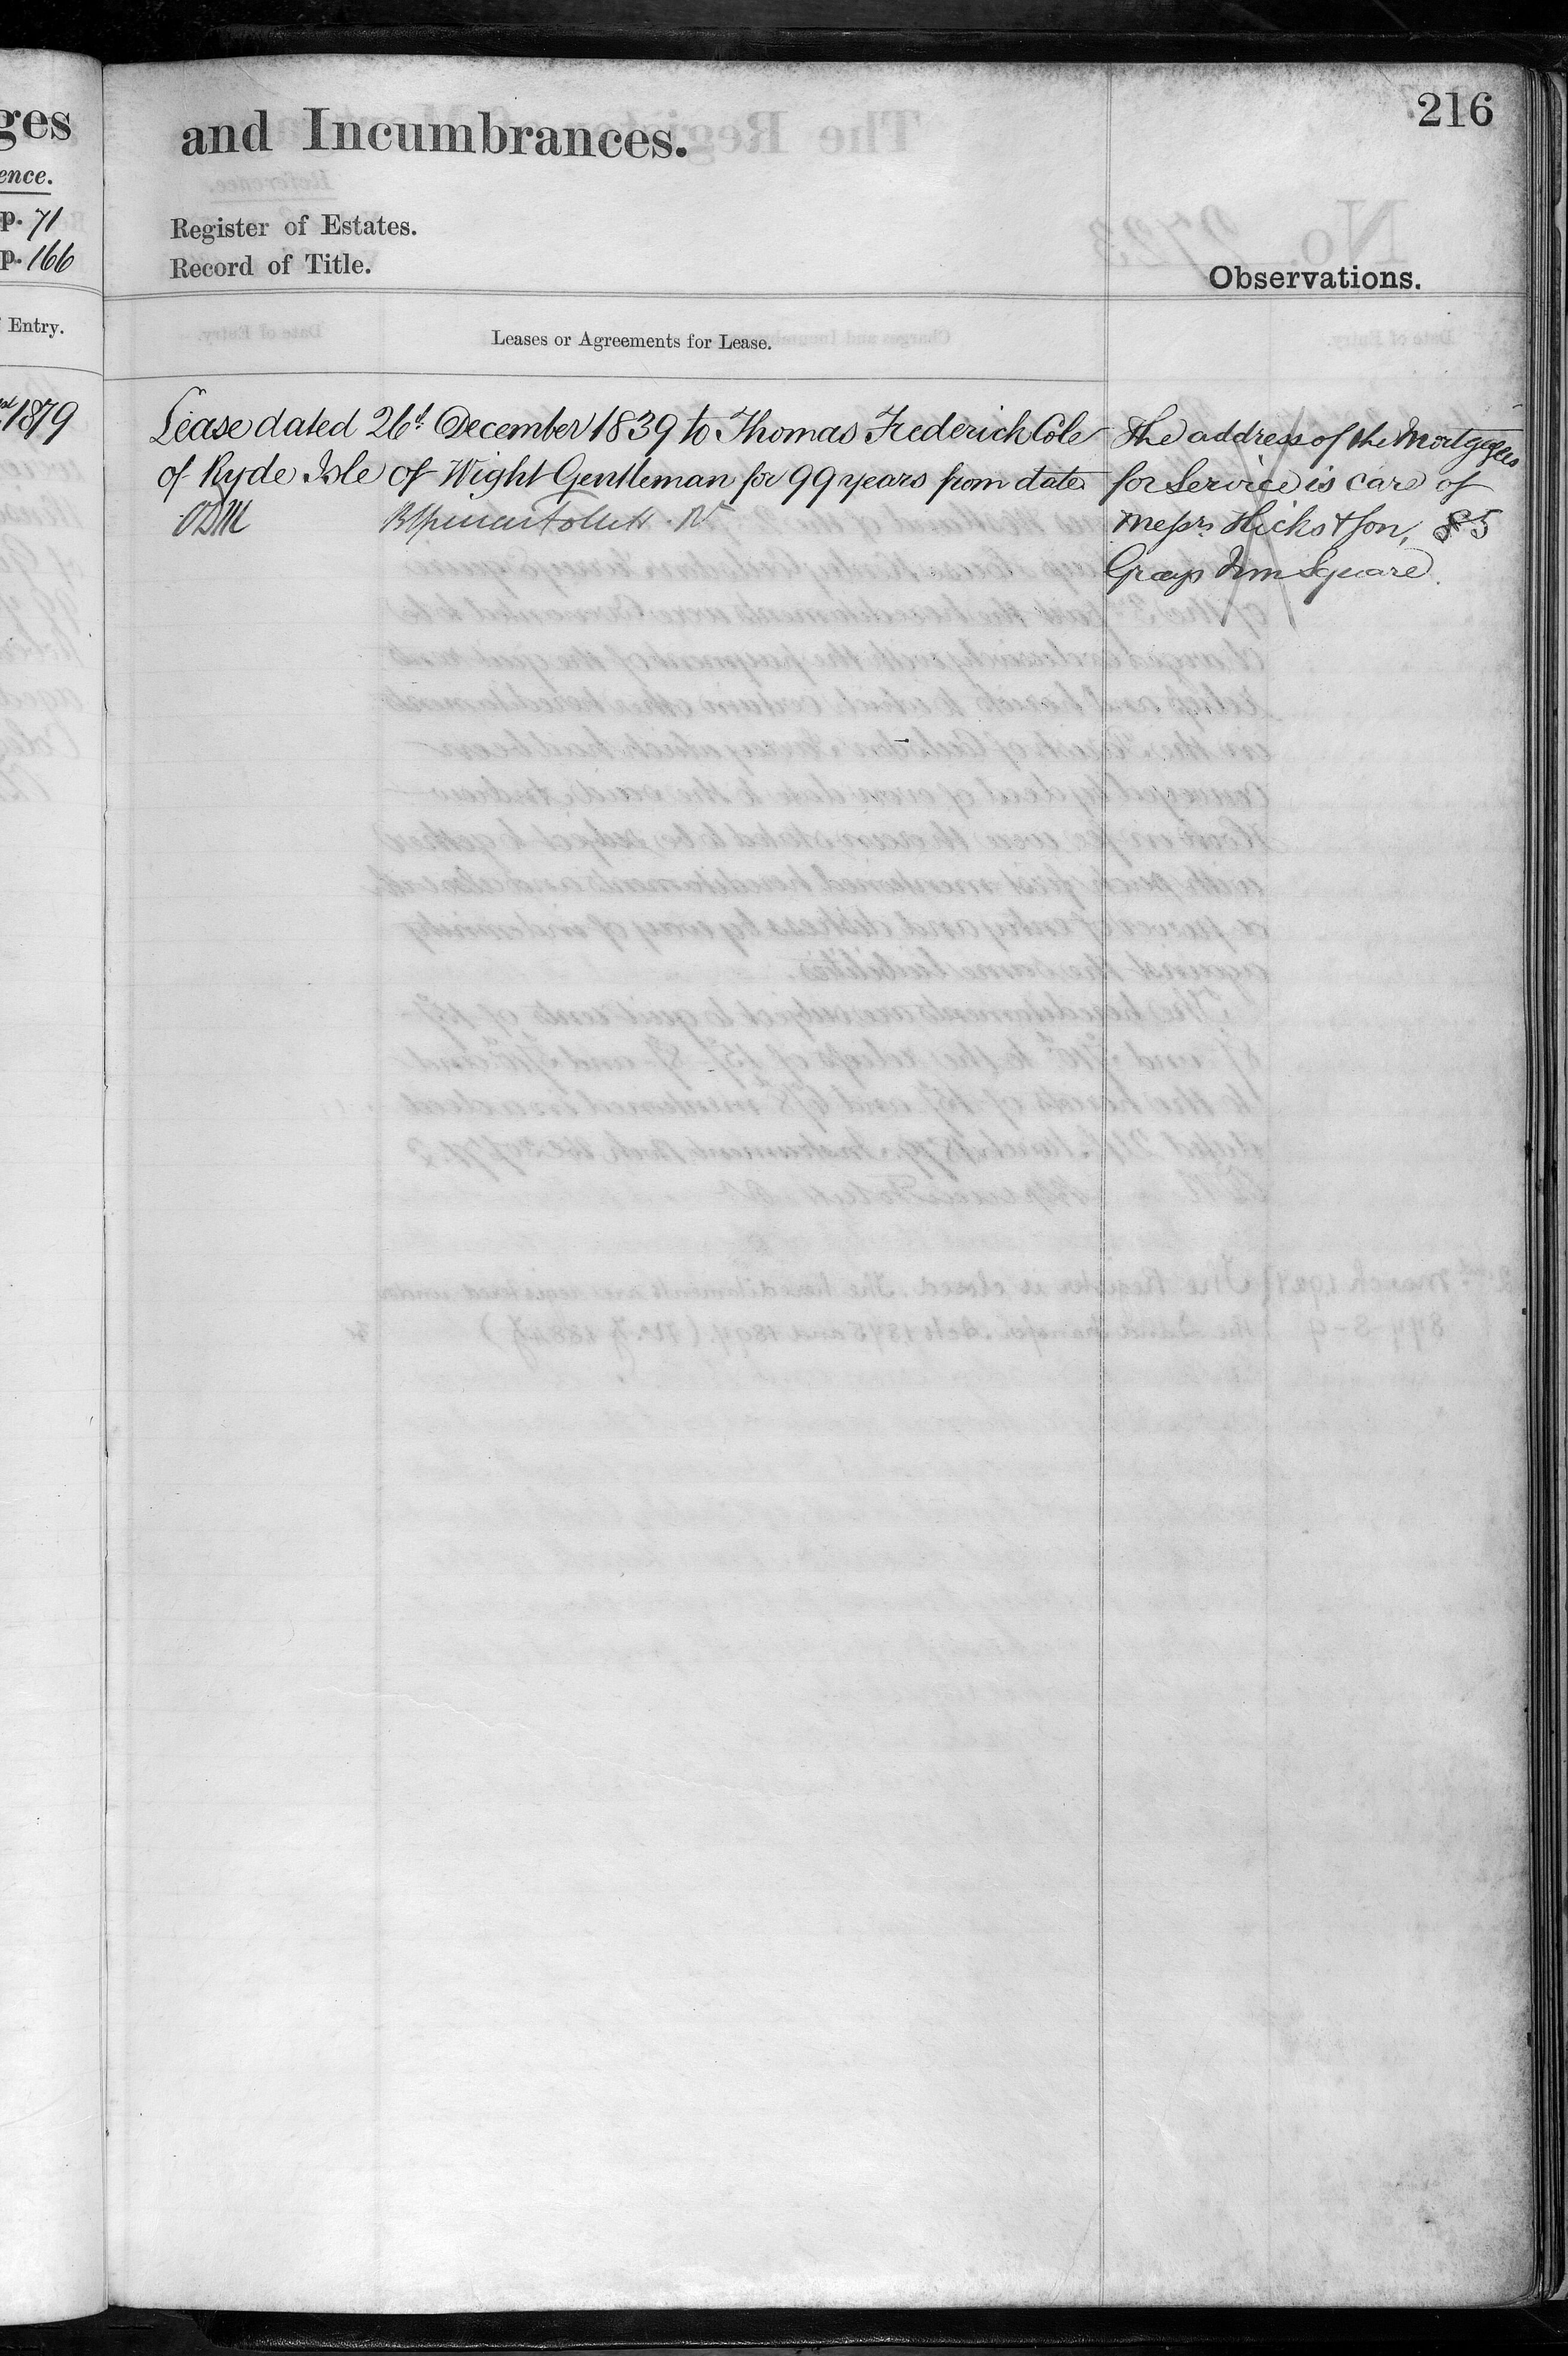 216
ges
and Incumbrances.
ence.
p. 71
Register of Estates.
p. 166
Record of Title.
Observations.
Entry.
Leases or Agreements for Lease.
1879
Lease dated 26th December 1839 to Thomas Frederick Cole
of Ryde Isle of Wight Gentleman for 99 years from date
The address of the Mortgagees
for Service is care of
Messrs Hicks & Son, 85
Grays Inn Square.